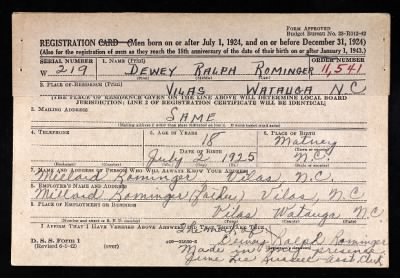 Form Approved
Budget Bureau No. 33-R012-42
REGISTRATION CARD—(Men born on or after July 1, 1924, and on or before December 31, 1924)
(Also for the registration of men as they reach the 18th anniversary of the date of their birth on or after January 1, 1943.)
SERIAL NUMBER 1. NAME (Print) ORDER NUMBER
W 219 DEWEY RALPH ROMINGER 11,541
(First) (Middle) (Last)
2. PLACE OF RESIDENCE (Print)
VILAS WATAUGA N.C.
(THE PLACE OF RESIDENCE GIVEN ON THE LINE ABOVE WILL DETERMINE LOCAL BOARD
JURISDICTION; LINE 2 OF REGISTRATION CERTIFICATE WILL BE IDENTICAL)
3. MAILING ADDRESS
SAME
4. TELEPHONE 5. AGE IN YEARS 6. PLACE OF BIRTH
18 Matney
DATE OF BIRTH
July 2 1925 N.C.
(Exchange) (Number) (Mo.) (Day) (Yr.) (State or country)
7. NAME AND ADDRESS OF PERSON WHO WILL ALWAYS KNOW YOUR ADDRESS
Millard Rominger Vilas, N.C.
8. EMPLOYER'S NAME AND ADDRESS
Millard Rominger Father, Vilas, N.C.
9. PLACE OF EMPLOYMENT OR BUSINESS
Vilas Watauga N.C.
I AFFIRM THAT I HAVE VERIFIED ABOVE ANSWERS AND THAT THEY ARE TRUE.
D. S. S. Form 1
(Revised 6-1-42)
Dewey Ralph Rominger
Made in